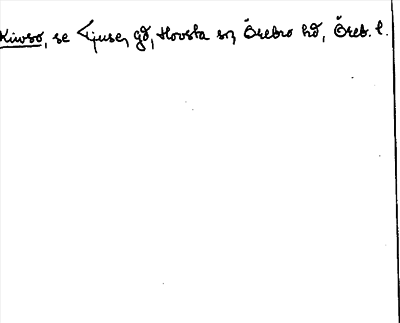 Kiwso, se Ljuse, gd, Hovsta sn, Örebro hd, Öreb. l.